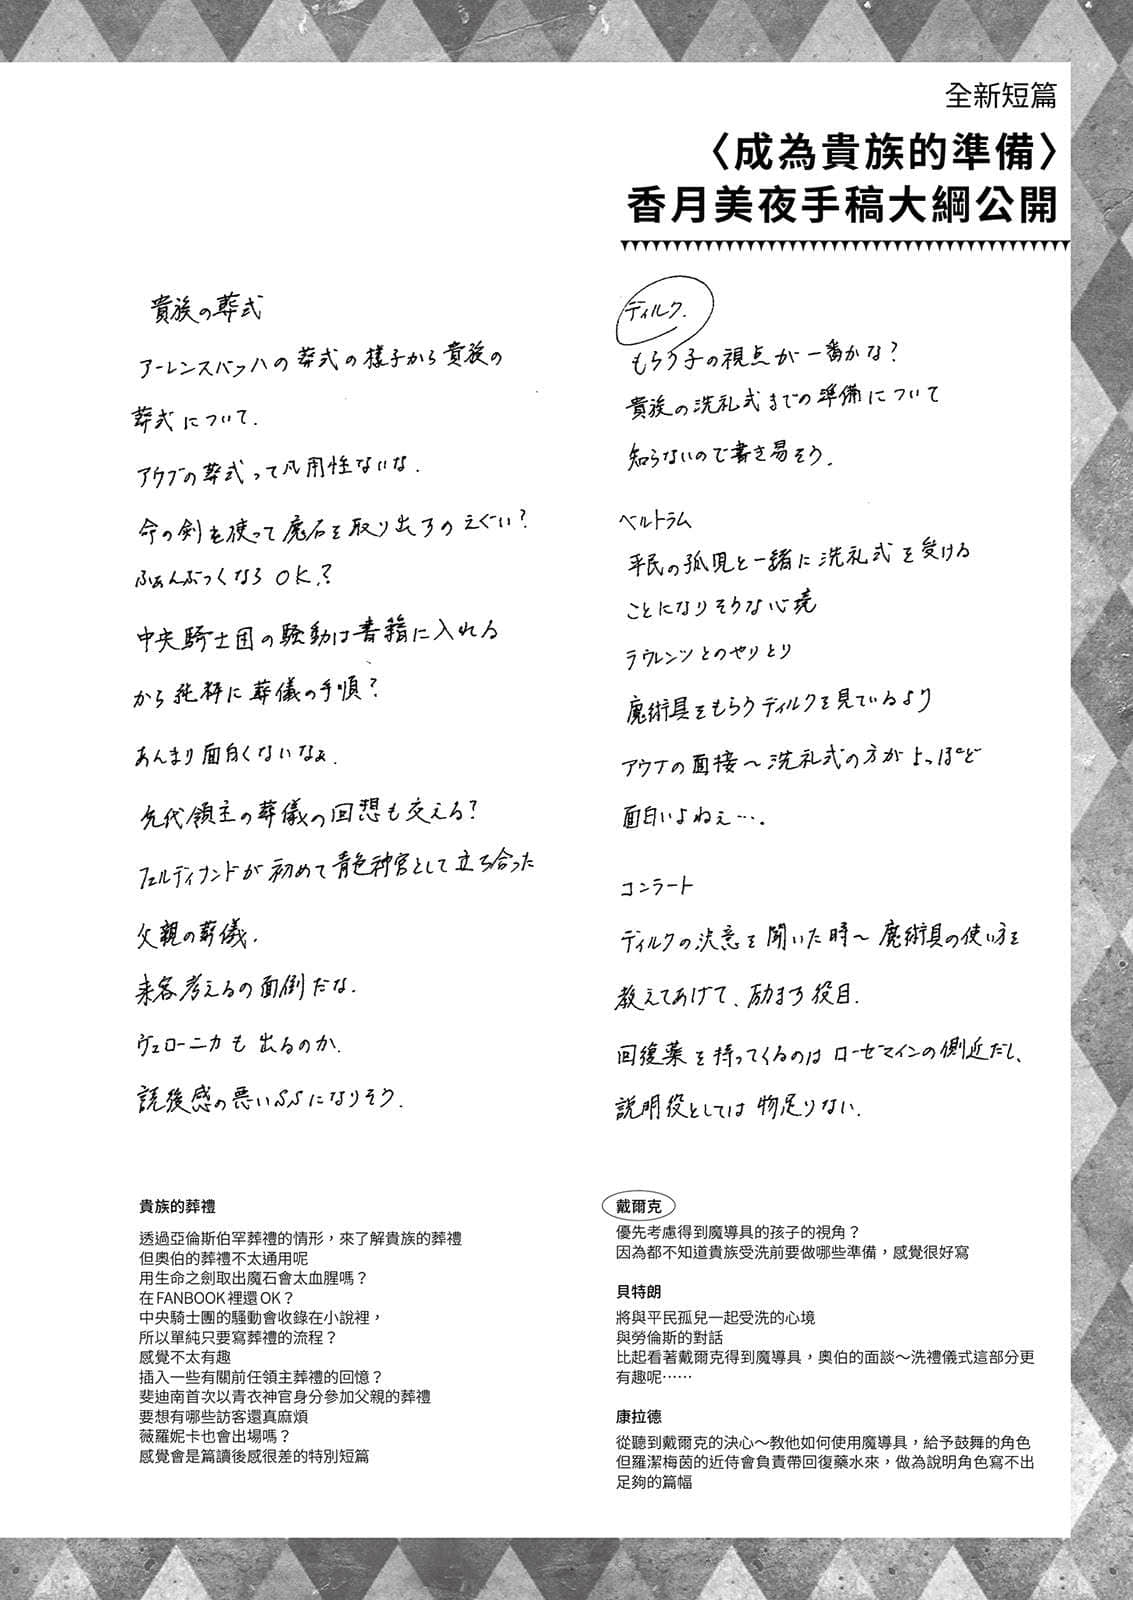 全新短篇
〈成為貴族的準備〉
香月美夜手稿大綱公開
貴族の葬式
アーレンスバッハの葬式の様子から貴族の
葬式について.
アウブの葬式って汎用性ないな.
命の剣を使って魔石を取り出すのえぐい?
ふぁんぶっくならOK?
中央騎士団の騒動は書籍に入れる
から純粋に葬儀の手順?
あんまり面白くないなぁ.
先代領主の葬儀の回想も交える?
フェルディナンドが初めて青色神官として立ち合った
父親の葬儀.
来客考えるの面倒だな.
ヴェローニカも出るのか.
読後感の悪いSSになりそう.
ディルク.
もらう子の視点が一番かな?
貴族の洗礼式までの準備について
知らないので書き易そう.
ベルトラム
平民の孤児と一緒に洗礼式を受ける
ことになりそうな心境
ラウレンツとのやりとり
魔術具をもらうディルクを見ているより
アウブの面接～洗礼式の方がよっぽど
面白いよねぇ….
コンラート
ディルクの決意を聞いた時～魔術具の使い方を
教えてあげて、励ます役目.
回復薬を持ってくるのはローゼマインの側近だし、
説明役としては物足りない.
貴族的葬禮
透過亞倫斯伯罕葬禮的情形，來了解貴族的葬禮
但奧伯的葬禮不太通用呢
用生命之劍取出魔石會太血腥嗎？
在FANBOOK裡還OK？
中央騎士團的騷動會收錄在小說裡，
所以單純只要寫葬禮的流程？
感覺不太有趣
插入一些有關前任領主葬禮的回憶？
斐迪南首次以青衣神官身分參加父親的葬禮
要想有哪些訪客還真麻煩
薇羅妮卡也會出場嗎？
感覺會是篇讀後感很差的特別短篇
戴爾克
優先考慮得到魔導具的孩子的視角？
因為都不知道貴族受洗前要做哪些準備，感覺很好寫
貝特朗
將與平民孤兒一起受洗的心境
與勞倫斯的對話
比起看著戴爾克得到魔導具，奧伯的面談～洗禮儀式這部分更
有趣呢……
康拉德
從聽到戴爾克的決心～教他如何使用魔導具，給予鼓舞的角色
但羅潔梅茵的近侍會負責帶回復藥水來，做為說明角色寫不出
足夠的篇幅